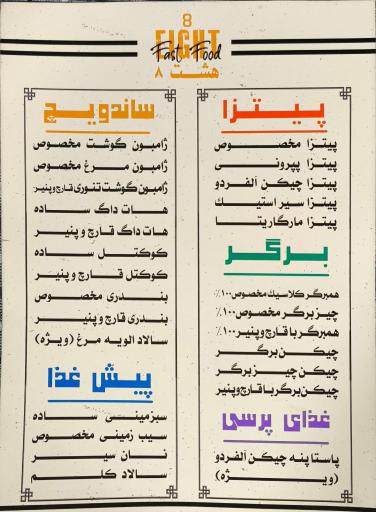 8
EIGHT
Fast Food
هشت ۸
پیتزا
پیتزا مخصوص
پیتزا پپرونی
پیتزا چیکن آلفردو
پیتزا سیر استیک
پیتزا مارگاریتا
برگر
همبرگر کلاسیک مخصوص ۱۰۰٪
چیز برگر مخصوص ۱۰۰٪
همبرگر با قارچ و پنیر ۱۰۰٪
چیکن برگر
چیکن چیز برگر
چیکن برگر با قارچ و پنیر
غذای پرسی
پاستا پنه چیکن آلفردو
(ویژه)
ساندویچ
ژامبون گوشت مخصوص
ژامبون مرغ مخصوص
ژامبون گوشت تنوری قارچ و پنیر
هات داگ ساده
هات داگ قارچ و پنیر
کوکتل ساده
کوکتل قارچ و پنیر
بندری مخصوص
بندری قارچ و پنیر
سالاد الویه مرغ (ویژه)
پیش غذا
سیب زمینی ساده
سیب زمینی مخصوص
نان سیر
سالاد کلم